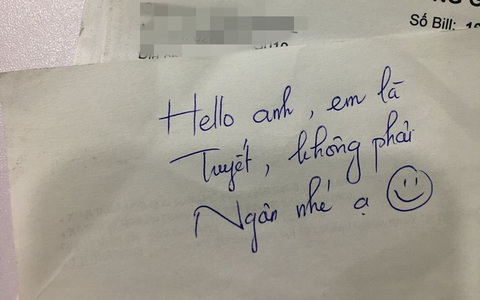 Số Bill:
Hello anh, em là
Tuyết, không phải
Ngân nhé ạ